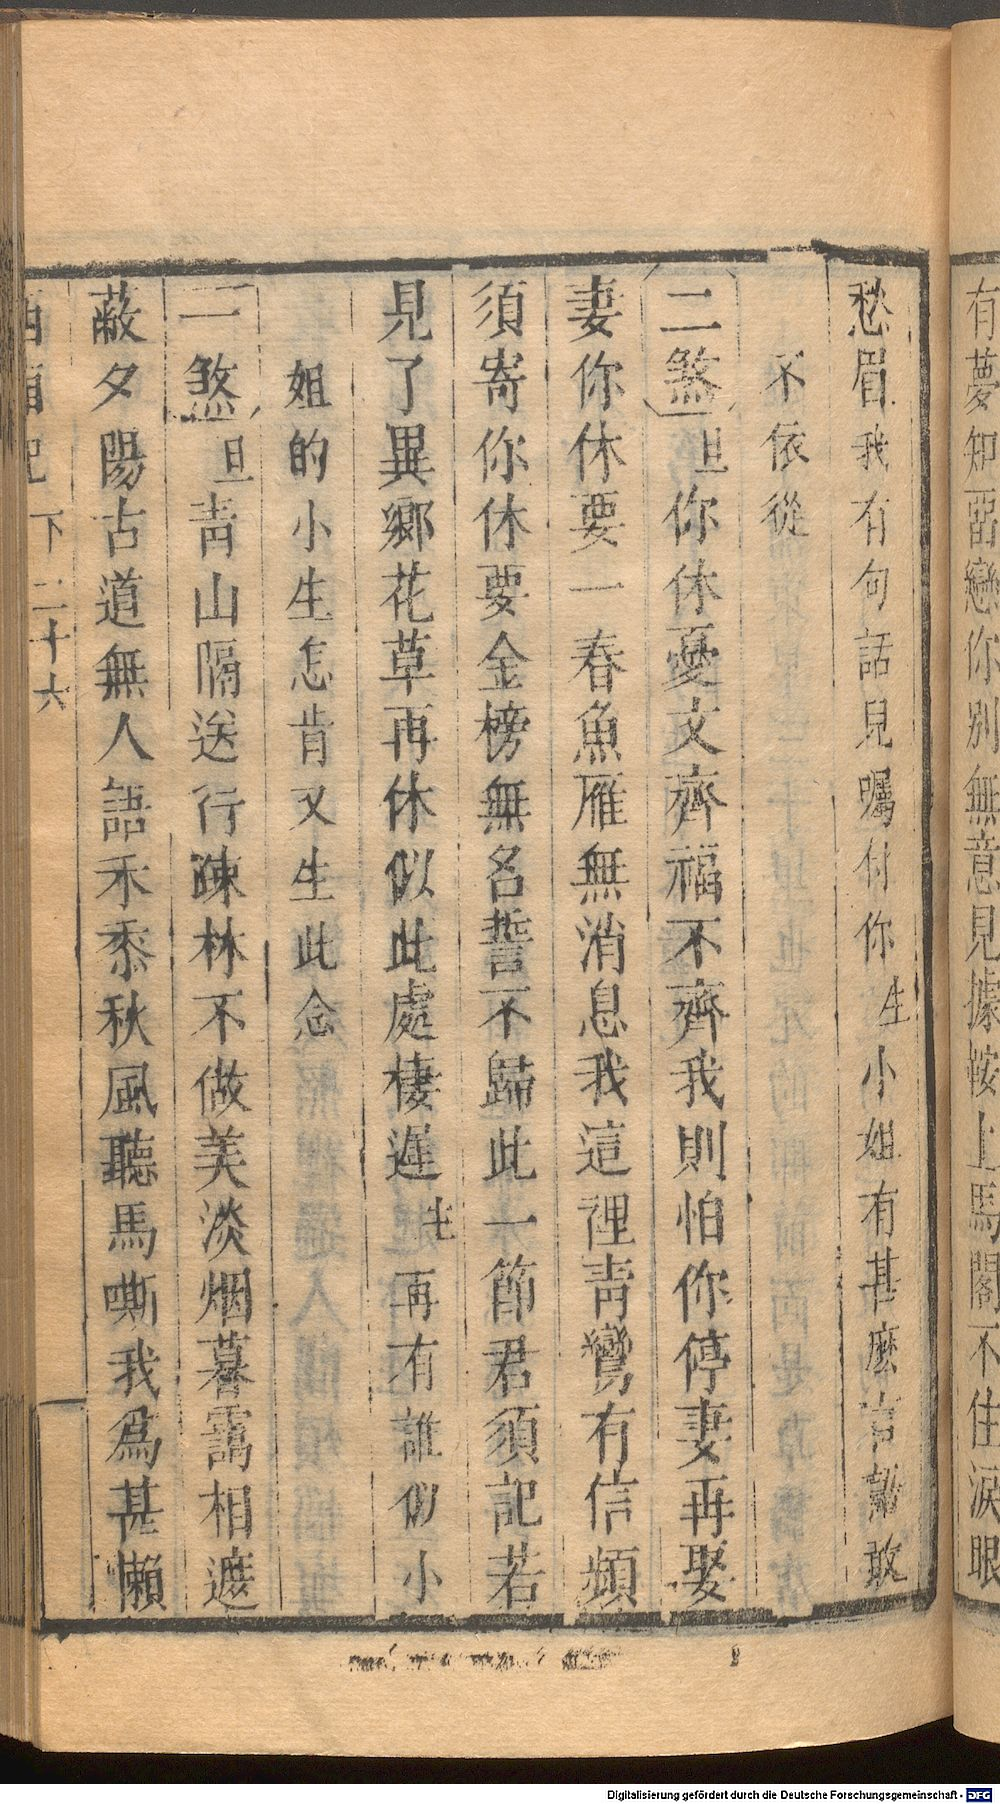 有夢知畱戀你別無意見據鞍上馬閣不住淚眼
愁眉我有句話兒囑付你生小姐有甚麽言語敢
不依從
二煞旦你休憂文齊福不齊我則怕你停妻再娶
妻你休要一春魚雁無消息我這裡青鸞有信頻
須寄你休要金榜無名誓不歸此一節君須記若
見了異鄉花草再休似此處棲遲生再有誰似小
姐的小生怎肯又生此念
一煞旦青山隔送行疎林不做美淡烟暮靄相遮
蔽夕陽古道無人語禾黍秋風聽馬嘶我爲甚懶
西廂記 下 二十六
Digitalisierung gefördert durch die Deutsche Forschungsgemeinschaft - DFG